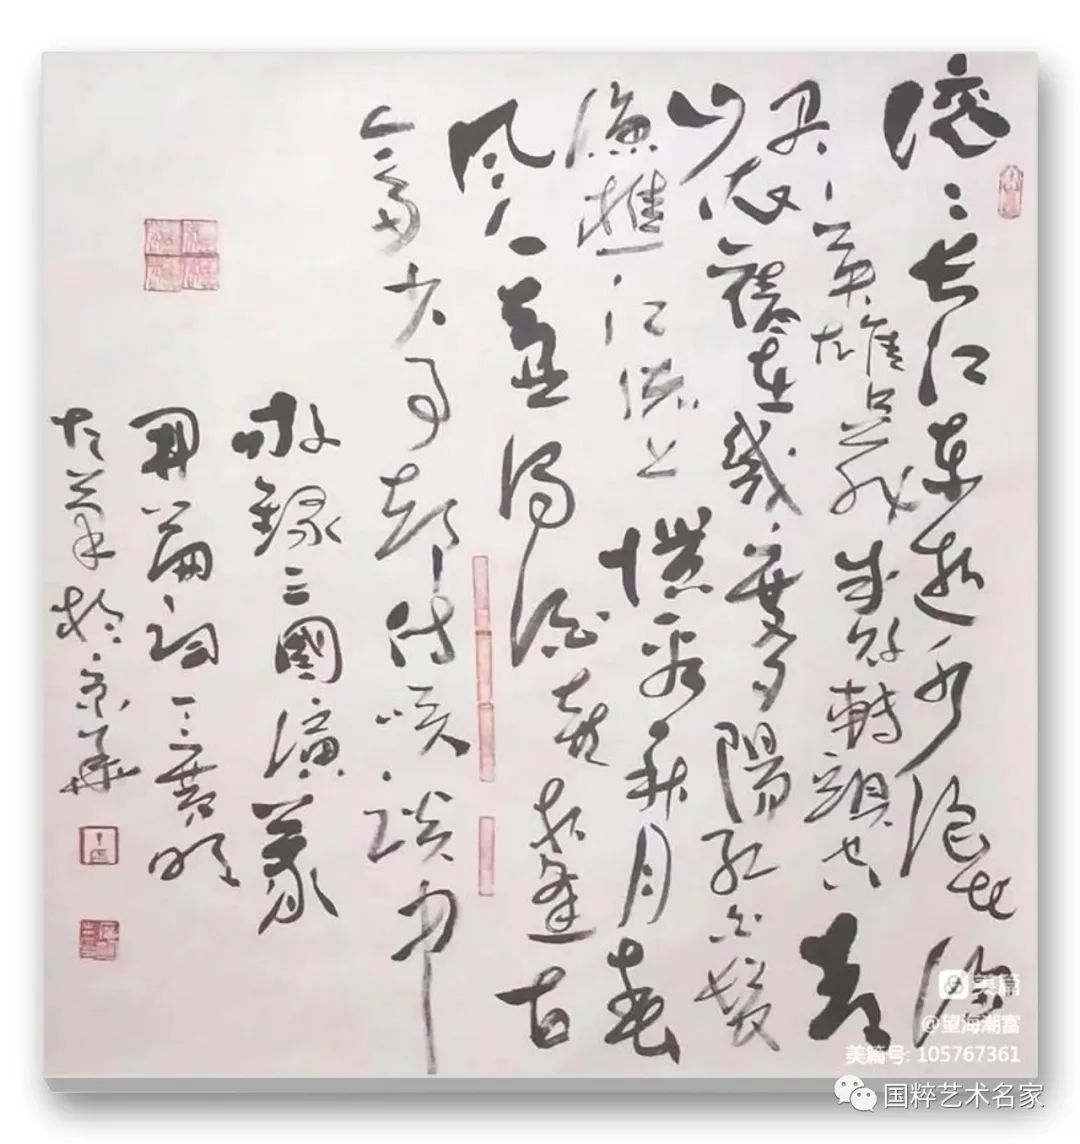 滚々长江东逝水浪花淘
尽英雄是非成败轉頭空青
山依舊在几度夕陽红白髮
渔樵江渚上惯看秋月春
风一壶浊酒喜相逢古
今多少事都付笑谈中
敬録三國演義
開篇词一
於京華
美篇
@望海潮富
美篇号: 105767361
国粹艺术名家